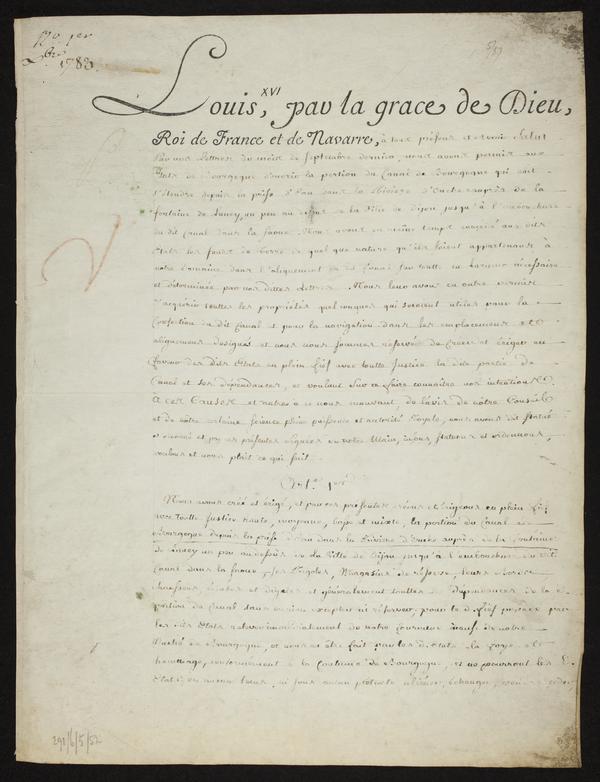 1er
1783.
Louis, XVI par la grace de Dieu,
Roi de France et de Navarre, à tous présens et à venir Salut
Par nos Lettres du mois de Septembre dernier, nous avons permis aux
Etats de Bourgogne d'ouvrir la portion du Canal de Bourgogne qui doit
s'étendre depuis la prise d'Eau dans la Riviere d'Ouche auprès de la
fontaine de Lancy, un peu au dessus de la Ville de Dijon jusqu'à l'embouchure
du dit Canal dans la Saone. Nous avons en même temps aux dits
Etats les fonds de terre de quelque nature qu'ils soient appartenans à
notre domaine dans l'alignement du dit Canal sur toutte la largeur nécessaire
et déterminée par nos dittes Lettres. Nous leur avons en outre permis
d'acquérir touttes les propriétés quelconques qui seroient utiles pour la
Confection du dit Canal et pour la navigation dans les emplacemens et
alignemens désignés et nous nous sommes réservés de Creer et ériger en
faveur des dits Etats en plein fief avec toutte Justice la dite partie de
Canal et ses dépendances, et voulant sur ce faire connaitre nos intentions
A ces Causes et autres à ce nous mouvant, de l'avis de notre Conseil
et de notre certaine science pleine puissance et autorité Royale, nous avons dit statué
et ordonné et par ces présentes signées de notre Main, disons, statuons et ordonnons,
voulons et nous plait ce qui suit.
Art. 1er
Nous avons créé et érigé, et par ces présentes créons et érigeons en plein fief
avec toutte Justice haute, moyenne, basse et mixte, la portion du Canal de
Bourgogne depuis la prise d'Eau dans la Riviere d'Ouche auprès de la fontaine
de Lancy un peu au dessus de la Ville de Dijon jusqu'à l'embouchure du dit
Canal dans la Saone, ses Rigoles, Magasins de réserve, leurs bords
chaussées, et digues et généralement touttes les dépendances de la de
portion de Canal sans en rien excepter ni réserver, pour le d. fief par
les dits Etats relever immédiatement de notre Couronne à cause de notre
Duché de Bourgogne, et nous en être fait par les d. Etats la foy et
hommage, conformément à la Coutume de Bourgogne, et ne pourront les d.
Etats, en aucun tems, ni sous aucun prétexte aliéner, échanger,
291/6/5/52